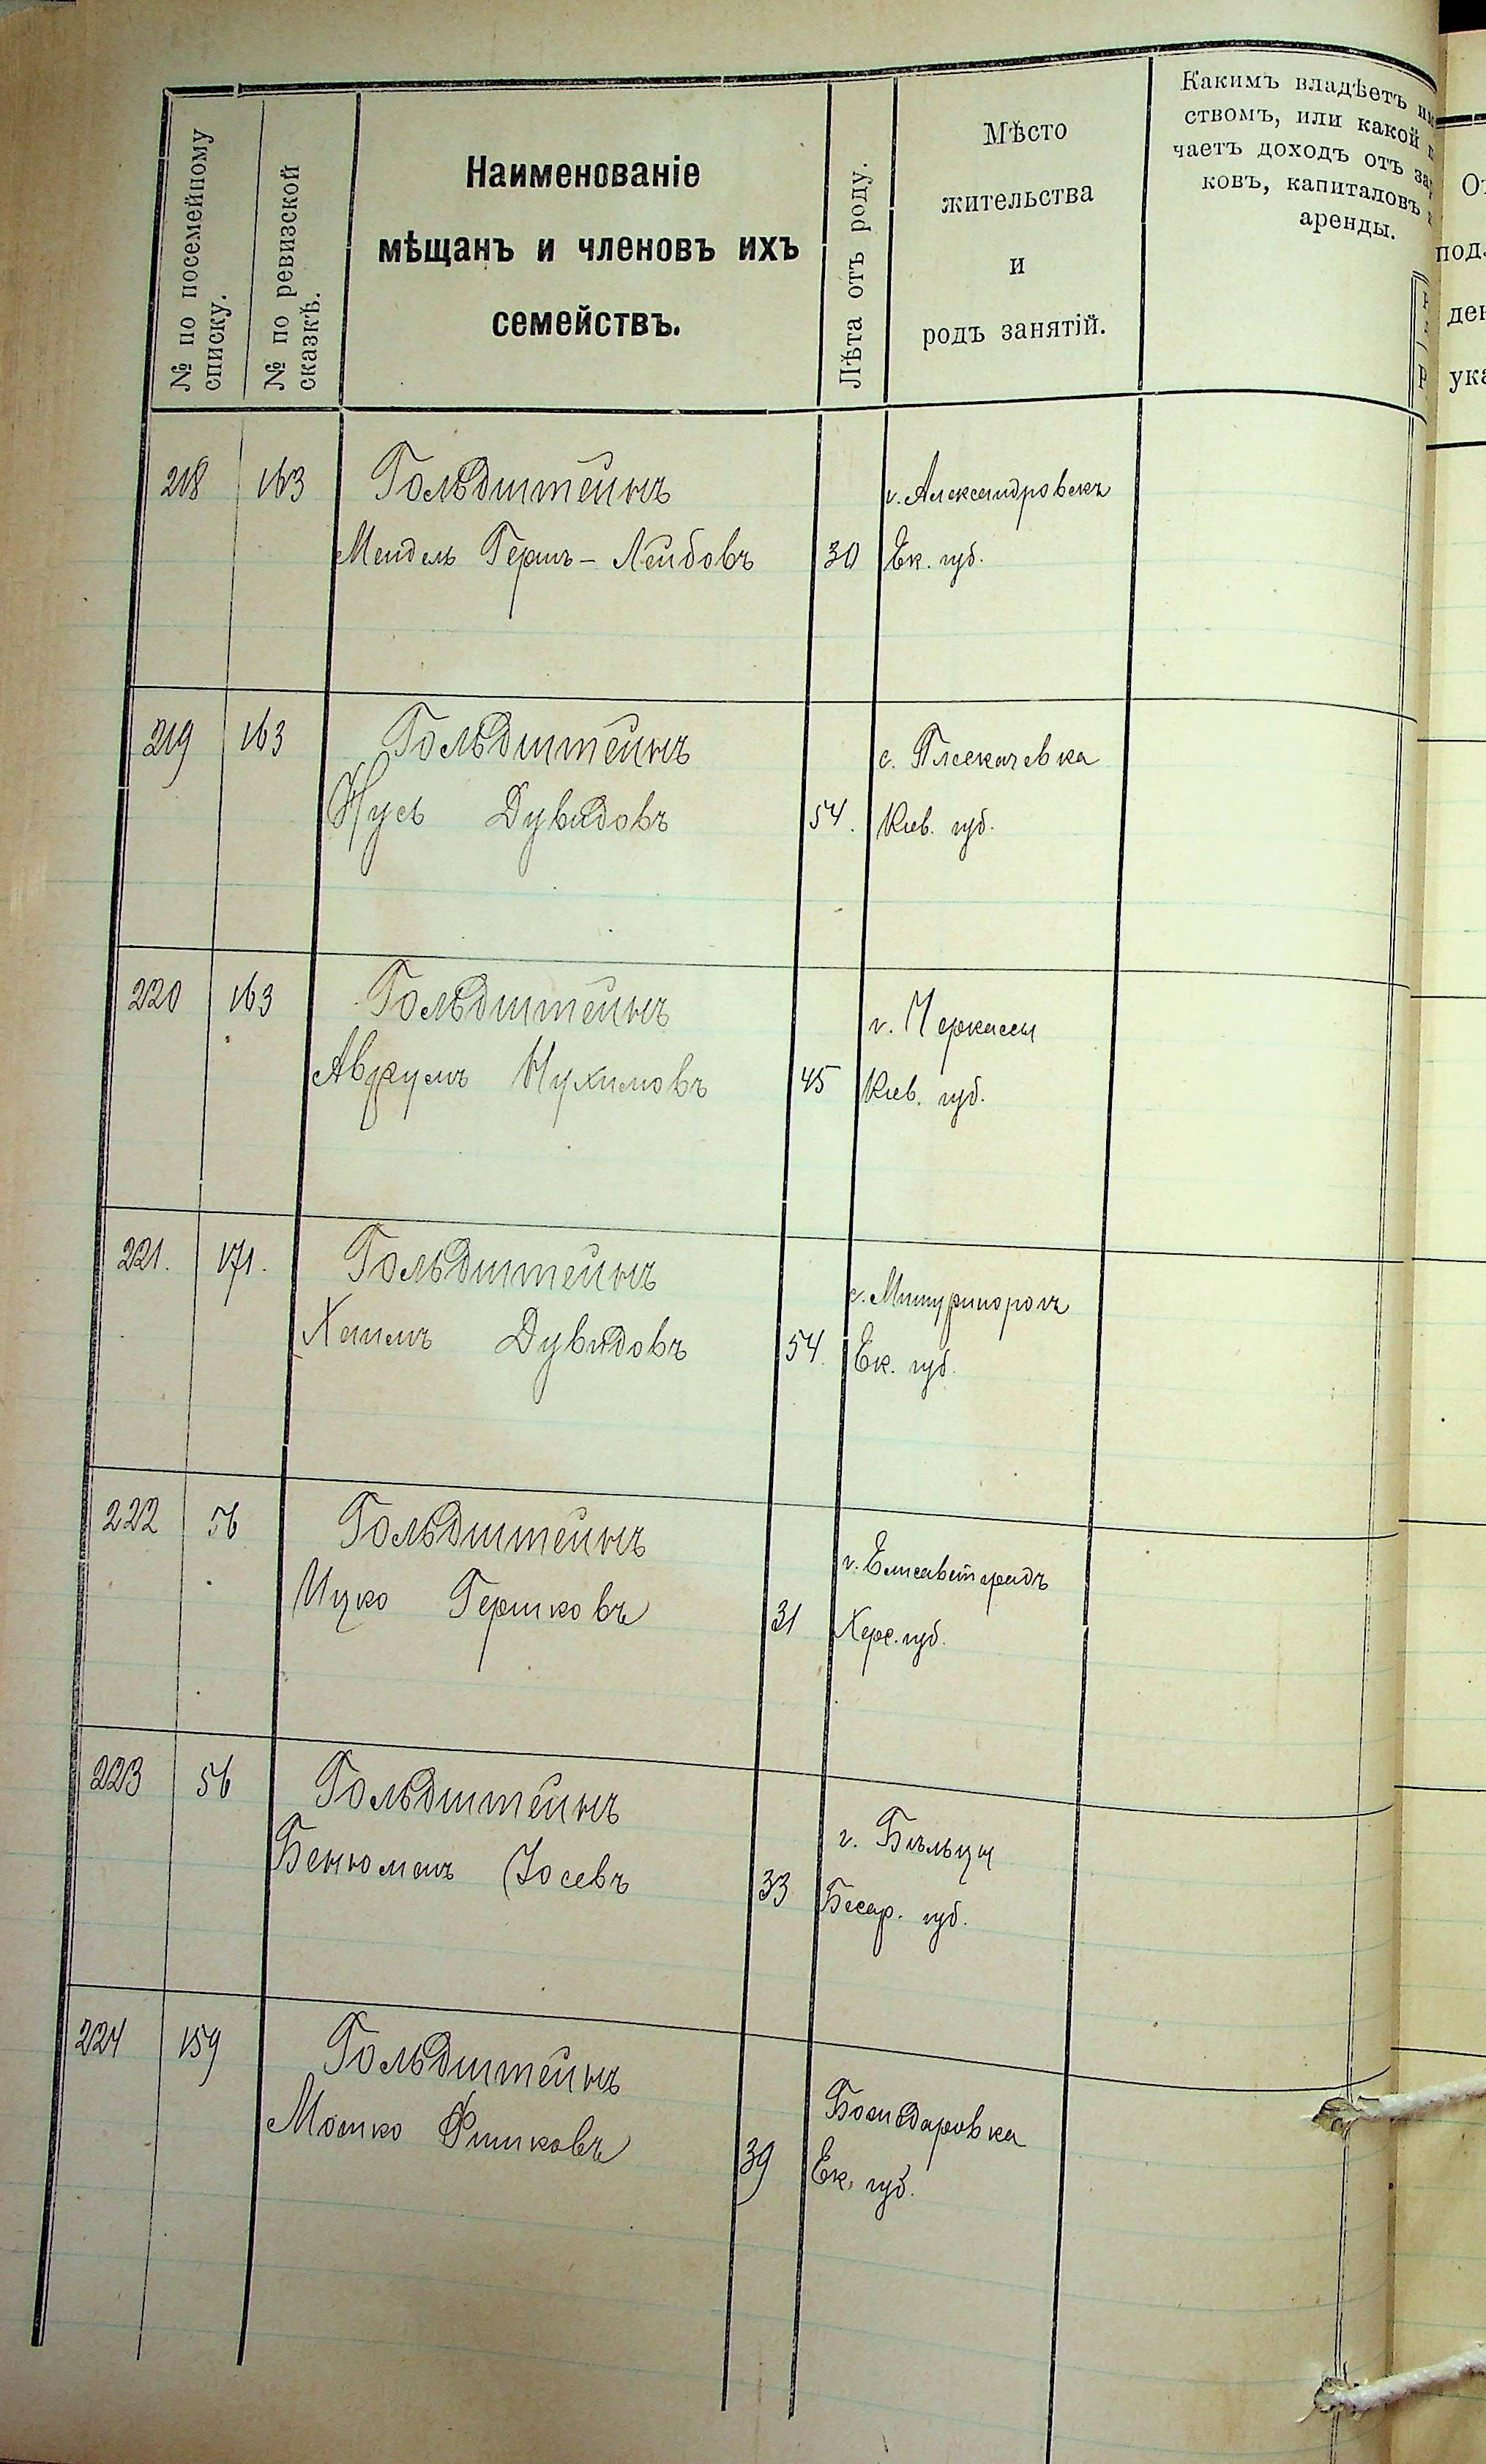 № по посемейному
списку.
№ по ревизской
сказкѣ.
Наименованіе
мѣщанъ и членовъ ихъ
семействъ.
Лѣта отъ роду.
Мѣсто
жительства
и
родъ занятій.
Какимъ владѣетъ
ствомъ, или какой
чаетъ доходъ отъ
ковъ, капиталовъ
аренды.
218 163 Гольдштейнъ г. Александровскъ
Мендель Герш-Лейбовъ 30 Ек. губ.
219 163 Гольдштейнъ с. Плескачевка
Нусь Дувидовъ 54. Кіев. губ.
220 163 Гольдштейнъ г. Черкассы
Аврумъ Нухимовъ 45 Кіев. губ.
221. 171. Гольдштейнъ с. Мишуринорогъ
Хаимъ Дувидовъ 54. Ек. губ.
222 56 Гольдштейнъ г. Елисаветградъ
Ицко Гершковъ 31 Херс. губ.
223 56 Гольдштейнъ г. Бѣльцы
Бенюменъ Іосевъ 33 Бесар. губ.
224 159 Гольдштейнъ Божедаровка
Мошко Фишковъ 39 Ек. губ.